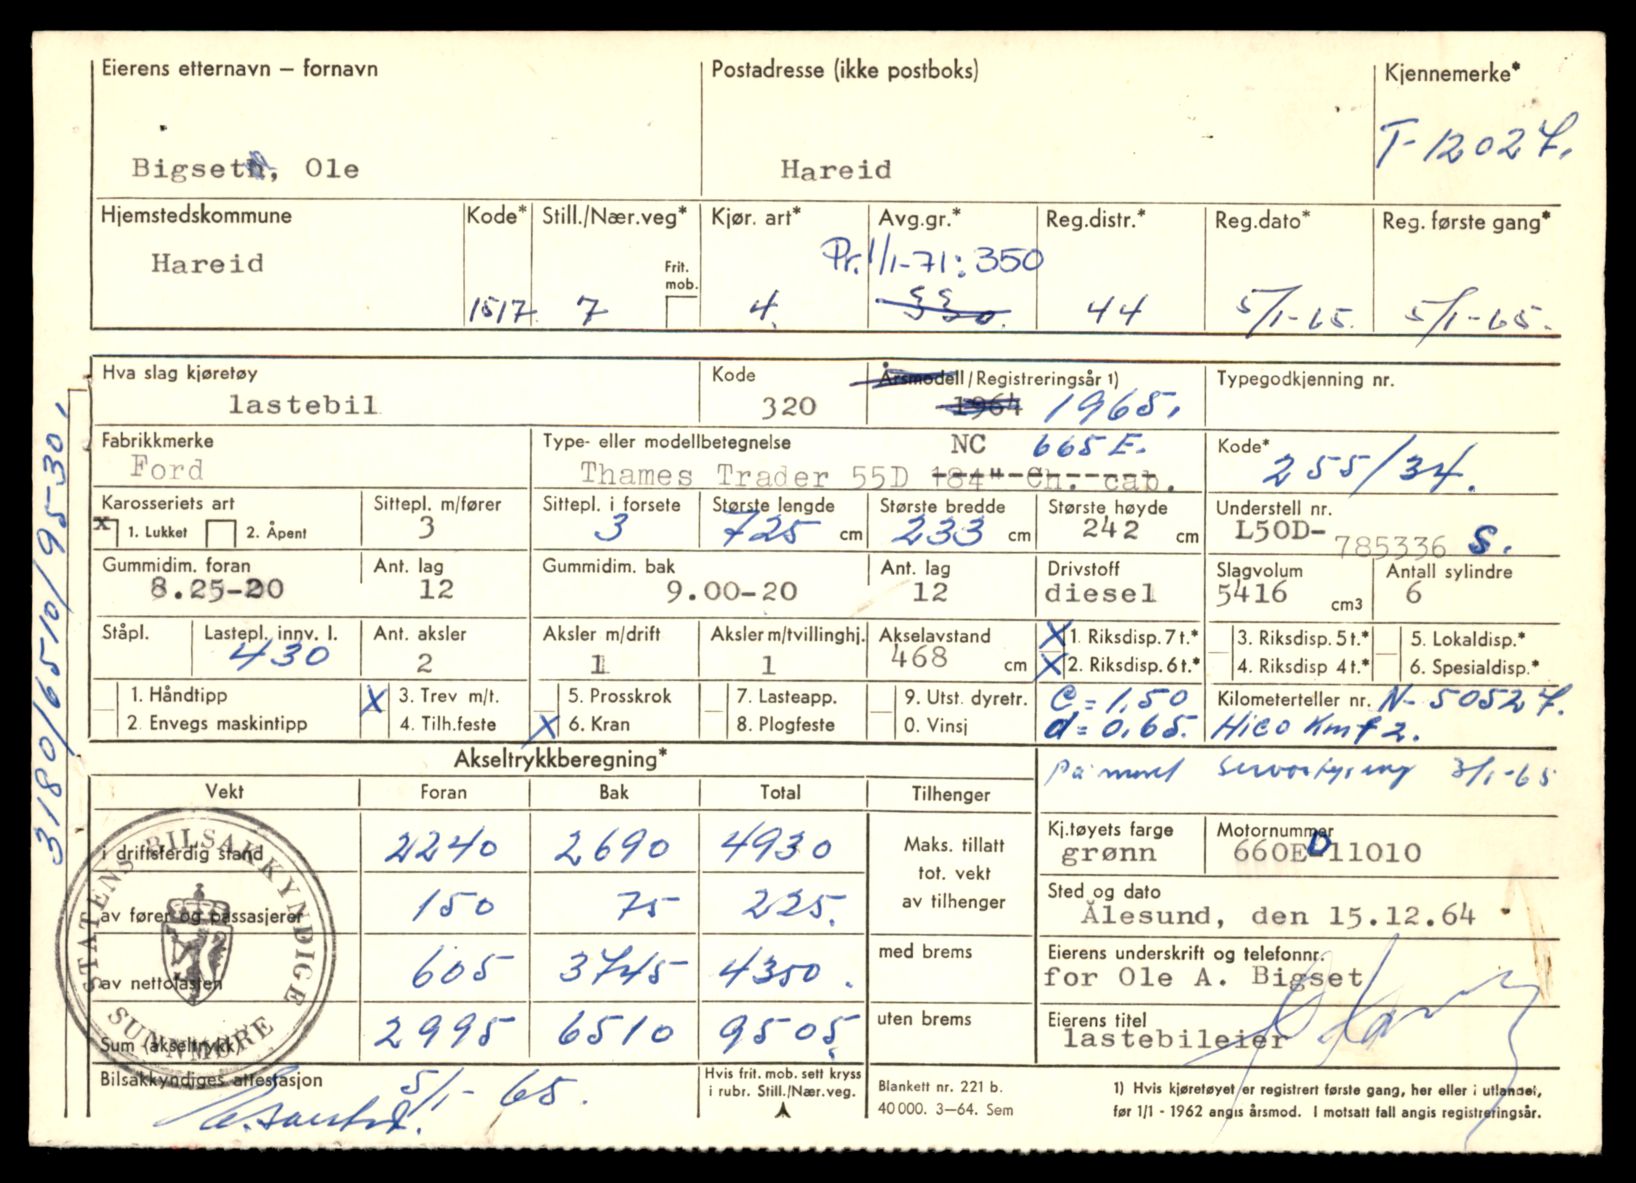 Eierens etternavn – fornavn
Postadresse (ikke postboks)
Kjennemerke*
Bigseth, Ole
Hareid
T-12027.
Hjemstedskommune
Kode*
Still./Nær.veg*
Kjør. art*
Avg.gr.*
Reg.distr.*
Reg.dato*
Reg. første gang*
Hareid
Frit. mob.
Pr. 1/1-71: 350
1517
7
4.
44
5/1-65.
5/1-65.
Hva slag kjøretøy
Kode
Årsmodell/Registreringsår 1)
Typegodkjenning nr.
lastebil
320
1964 1965.
Fabrikkmerke
Type- eller modellbetegnelse
NC 665 E.
Kode*
Ford
Thames Trader 55D 184"-Ch.-cab.
255/34.
Karosseriets art
Sittepl. m/fører
Sittepl. i forsete
Største lengde
Største bredde
Største høyde
Understell nr.
x 1. Lukket
2. Åpent
3
3
725 cm
233 cm
242 cm
L50D-785336 S.
Gummidim. foran
Ant. lag
Gummidim. bak
Ant. lag
Drivstoff
Slagvolum
Antall sylindre
8.25-20
12
9.00-20
12
diesel
5416 cm3
6
Ståpl.
Lastepl. innv. l.
Ant. aksler
Aksler m/drift
Aksler m/tvillinghj.
Akselavstand
X 1. Riksdisp. 7 t.*
3. Riksdisp. 5 t.*
5. Lokaldisp.*
430
2
1
1
468 cm
X 2. Riksdisp. 6 t.*
4. Riksdisp 4 t.*
6. Spesialdisp.*
1. Håndtipp
X 3. Trev m/t.
5. Prosskrok
7. Lasteapp.
9. Utst. dyretr.
C = 1,50
Kilometerteller nr. N-50527.
2. Envegs maskintipp
4. Tilh.feste
X 6. Kran
8. Plogfeste
0. Vinsj
d = 0,65.
HICO Kmf 2.
3180/6510/95-30.
Akseltrykkberegning*
Påmont Servostyring 3/1-65
Vekt
Foran
Bak
Total
Tilhenger
i driftsferdig stand
2240
2690
4930
Maks. tillatt
tot. vekt
av tilhenger
Kj.tøyets farge
grønn
Motornummer
660E D 11010
av fører og passasjerer
150
75
225.
Sted og dato
Ålesund, den 15.12.64
av nettolasten
605
3745
4350.
med brems
Eierens underskrift og telefonnr.
for Ole A. Bigset
Sum (akseltrykk)
2995
6510
9505.
uten brems
Eierens titel
lastebileier
STATENS BILSAKKYNDIGE
SUNNMØRE
Bilsakkyndiges attestasjon
5/1-65.
Hvis frit. mob. sett kryss
i rubr. Still./Nær.veg.
Blankett nr. 221 b.
40 000. 3–64. Sem
1) Hvis kjøretøyet er registrert første gang, her eller i utlandet,
før 1/1 - 1962 angis årsmod. I motsatt fall angis registreringsår.